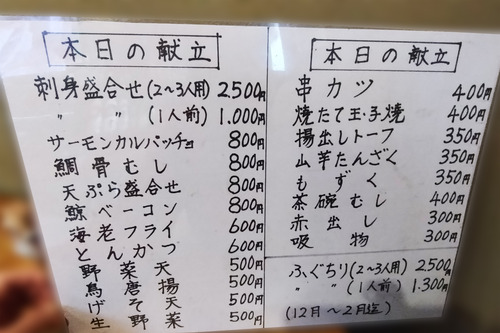 本日の献立
刺身盛合せ(2〜3人用) 2.500円
〃 〃 (1人前) 1.000円
サーモンカルパッチョ 800円
鯛骨むし 800円
天ぷら盛合せ 800円
鯨ベーコン 800円
海老フライ 600円
とんかつ 600円
野菜天 500円
鳥唐揚 500円
げそ天 500円
生野菜 500円
本日の献立
串カツ 400円
焼たて玉子焼 400円
揚出しトーフ 350円
山芋たんざく 350円
もずく 350円
茶碗むし 400円
赤出し 300円
吸物 300円
ふぐちり(2〜3人用) 2.500円
〃 〃 (1人前) 1.300円
(12月〜2月迄)